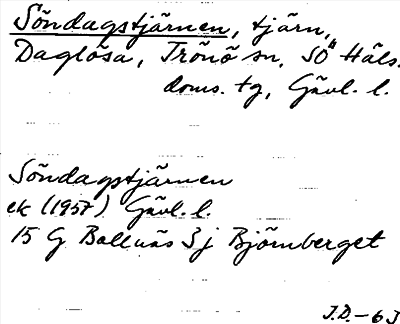 Söndagstjärnen, tjärn,
Daglösa, Trönö sn, SÖ Häls.
doms. tg, Gävl. l.
Söndagstjärnen
ek (1957) Gävl. l.
15 G Bollnäs 3j Björnberget
J.D. – 63